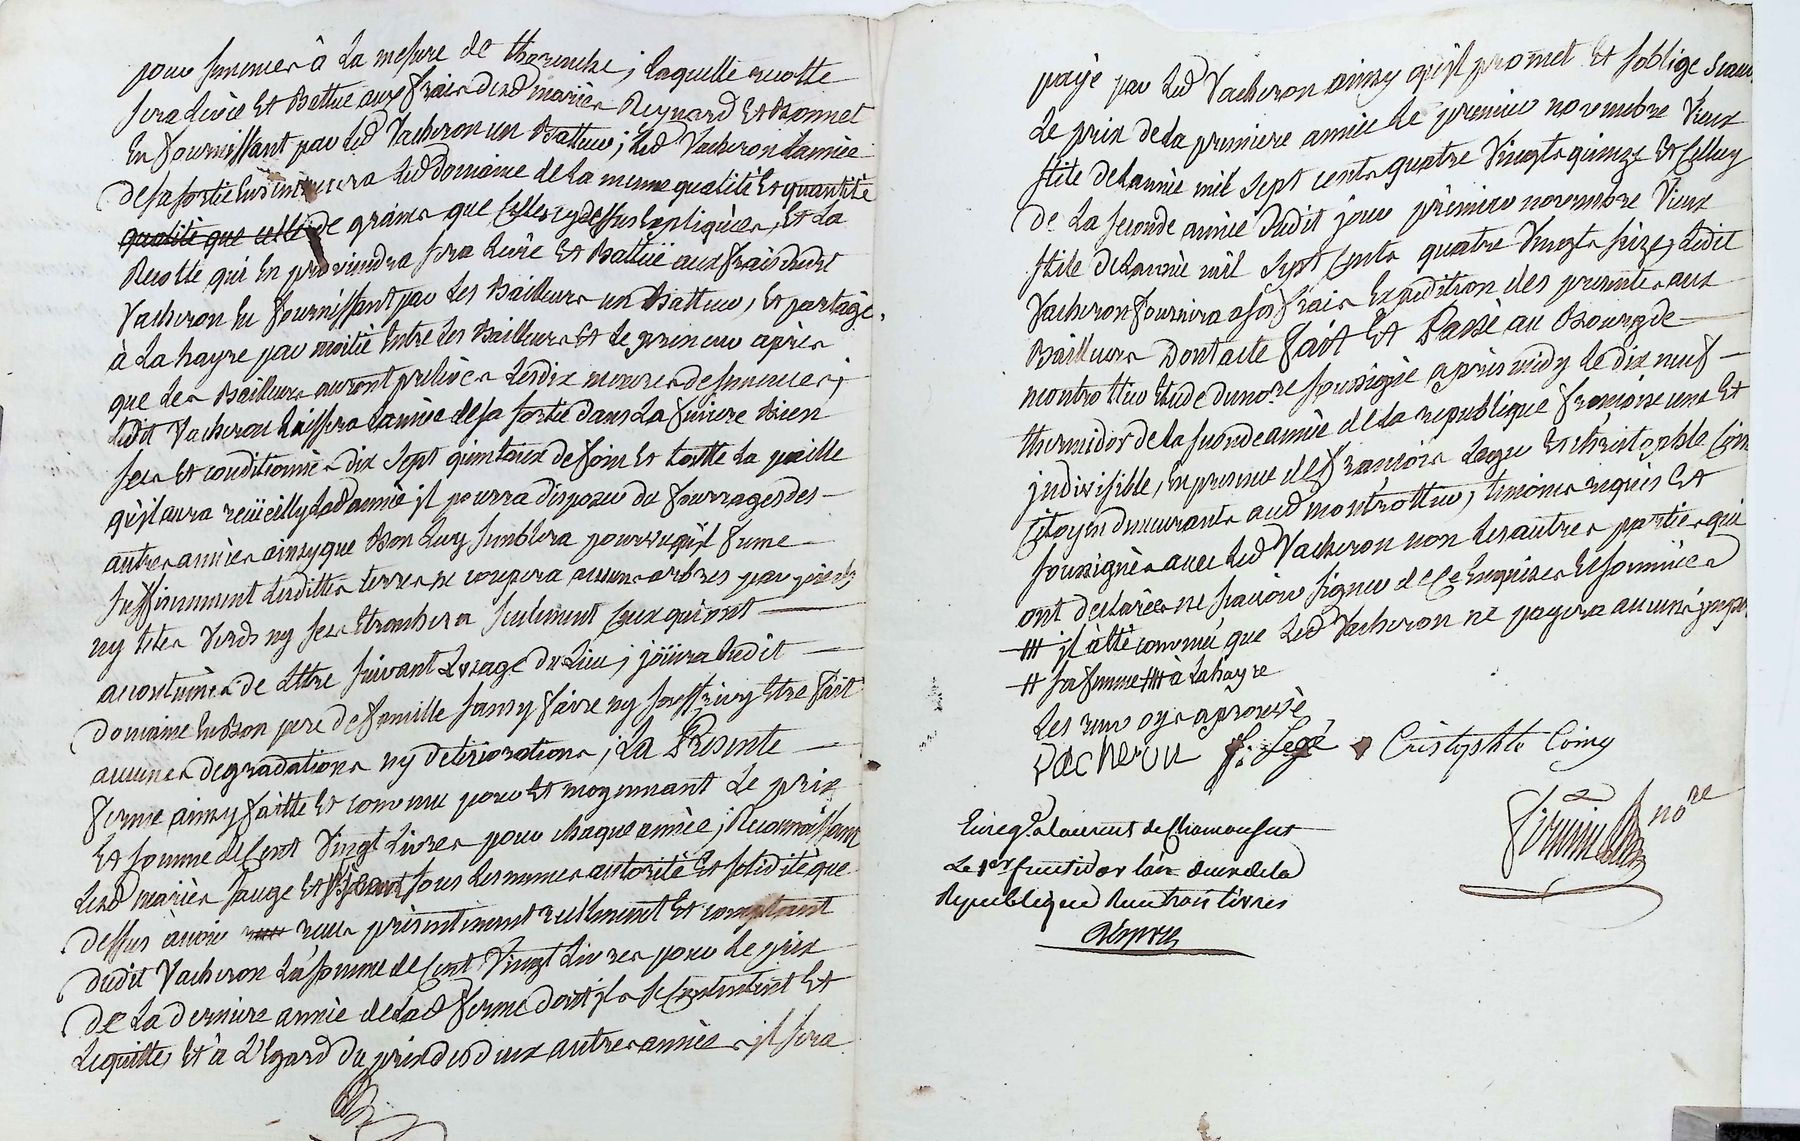 pour semences à la mesure de thorenche ; laquelle recolte
sera levée et Battue aux frais desd mariés Reynard et Bonnet
En fournissant par led Vacheron un Batteur ; led Vacheron l'année
de sa sortie led domaine de la meme qualité et quantité
qualité que celle de grains que celles cy dessus Expliquées, et la
Recolte qui En proviendra sera levée et Battüe aux frais dudit
Vacheron En fournissant par les Bailleurs un Batteur, et partagée
à la hayre par moitié Entre les Bailleurs et le preneur après
que les Bailleurs auront prelevés lesdix mesures de semences ;
ledit Vacheron laissera l'année de sa sortie dans la feniere Bien
secs et conditionnés dix sept quintaux de foin et toutte la paille
qu'jl aura reüeilly lad année jl pourra disposer du fourrages des
autres années ainsy que Bon luy semblera pourvu qu'jl fume
suffisemment lesdittes terres ne coupera aucuns arbres par pieds
ny tetes verds ny secs Etronchera seulement Ceux qui ont
acoutumés de L'ttre suivant L'usage du Lieu ; joüira ledit
Domaine En Bon pere de famille sansy faire ny souffrir y Etre fait
aucunes degradations ny deteriorations ; La Presente
ferme ainsy faitte et convenue pour et moyennant le prix
et somme de Cent Vingt Livres pour chaque année ; Reconnoissant
lesd mariés sous les memes autorité et solidité que
dessus avoir reçus présentement reellement et comptant
dudit Vacheron la somme de Cent Vingt Livres pour le prix
de la derniere année de lad ferme dont jls se Contentent et
lequittes et à L'Egard du prix des deux autres années jl sera
payé par led Vacheron ainsy qu'jl promet et soblige
le prix de la premiere année le premier novembre Vieux
stile de l'année mil sept cents quatre Vingts quinze et Celluy
de la seconde année dudit jour premier novembre Vieux
stile de l'année mil sept Cents quatre Vingts seize, ledit
Vacheron fournira a ses frais Expedition des presentes aux
Bailleurs Dont acte fait et Passé au Bourg de
montrottier Etude du nore soussigné apres midy le dix neuf
thermidor de la seconde année de la republique françoise une et
jndivisible, En presence de françois Lege et christophle Coing
Citoyens demeurants aud montrottier, temoins requis et
soussignés avec led Vacheron non les autres parties qui
ont declarées ne savoir signer de ce Enquises et sommées
jl a Eté convenu que led Vacheron ne payera aucune
sa femme à la hayre
Les renvoys aprouvé
vacheron f. Legé Cristophle Coing
nore
Enregé a laurent de Chamousset
le 1er fructidor l'an deux de la
Republique Reçu trois livres